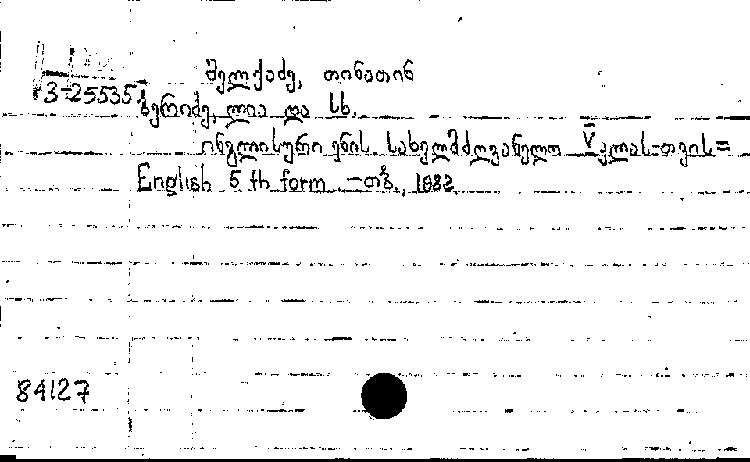 თინათინ
3-25535
ბერიძე, ლია და სხ.
ინგლისური ენის სახელმძღვანელო V კლას-თვის=
English 5 th form. -თბ.,
84127